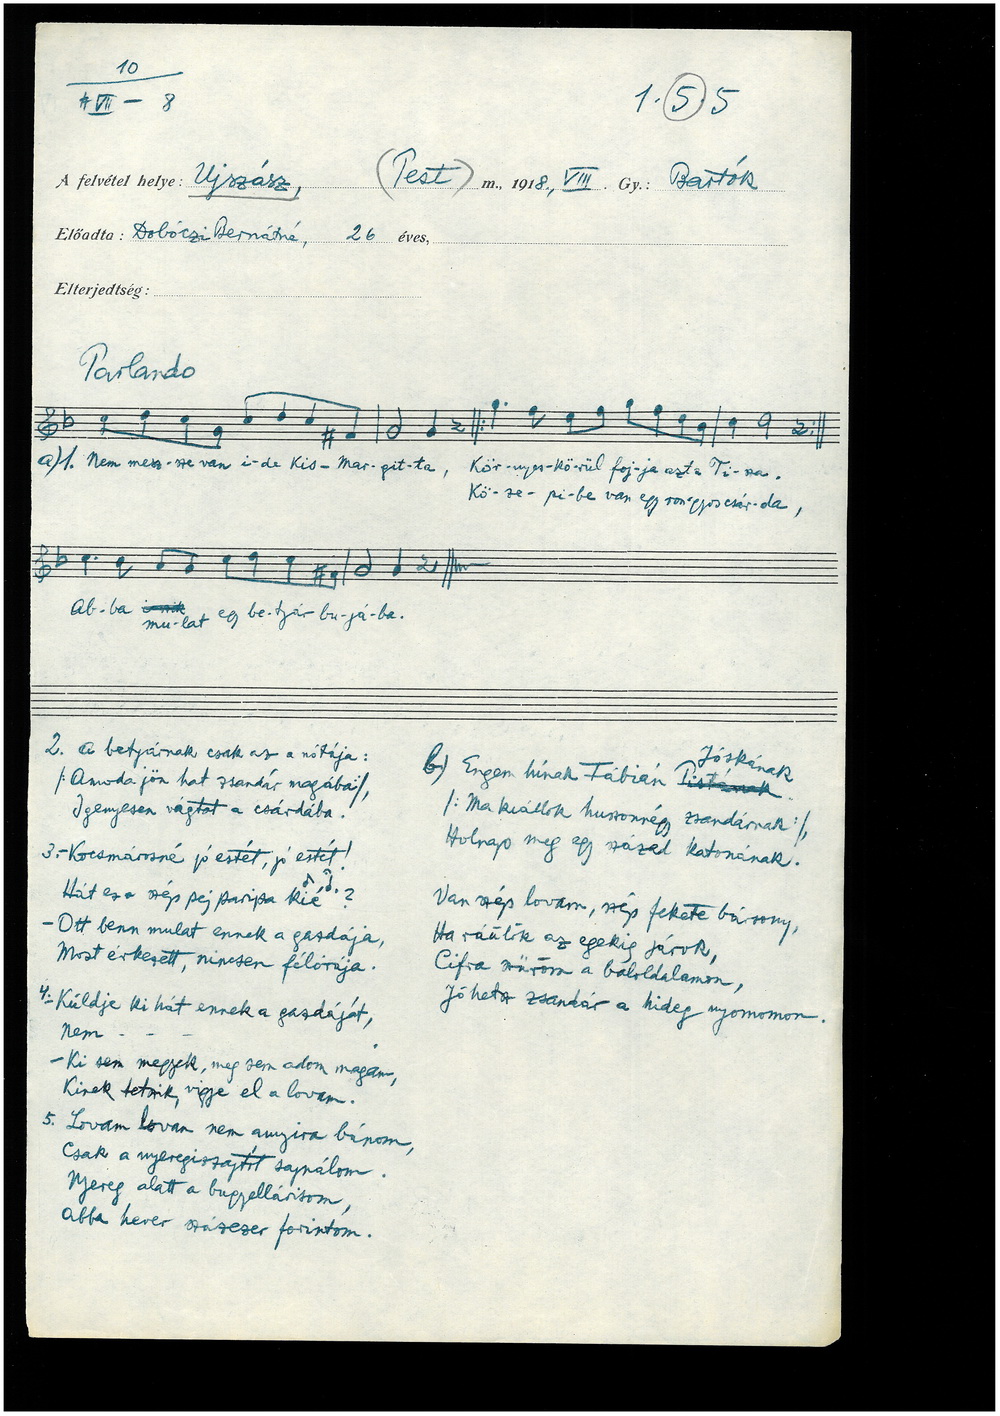 10
VII – 8
1. 5. 5
A felvétel helye: Ujszász, (Pest) m., 1918., VIII. Gy.: Bartók
Előadta: Dobóczi Bernátné, 26 éves,
Elterjedtség:
Parlando
a) 1. Nem mesz-sze van i-de Kis-Mar-git-ta, Kör-nyes-körül foj-ja azt a Ti-sza.
Kö-ze-pi-be van egy rongyos csár-da,
Ab-ba i-szik
mu-lat egy be-tyár bu-já-ba.
2. A betyárnak csak az a nótája:
/: Amoda jön hat zsandár magába :/,
Igenyesen vágtat a csárdába.
3. – Kocsmárosné jó estét, jó estét!
Hát ez a szép pej paripa kié?
– Ott benn mulat ennek a gazdája,
Most érkezett, nincsen félórája.
4. – Küldje ki hát ennek a gazdáját,
Nem - - -
– Ki sem megyek, meg sem adom magam,
Kinek tetszik, vigye el a lovam.
5. Lovam lovam nem annyira bánom,
Csak a nyeregszajtót sajnálom.
Nyereg alatt a bugyellárisom,
Abba hever százezer forintom.
b) Engem hínak Fábián Pistának Jóskának
/: Ma kiállok huszonnégy zsandárnak :/,
Holnap meg egy század katonának.
Van szép lovam, szép fekete bársony,
Ha ráülök az egekig járok,
Cifra szűröm a baloldalamon,
Jöhetsz zsandár a hideg nyomomon.